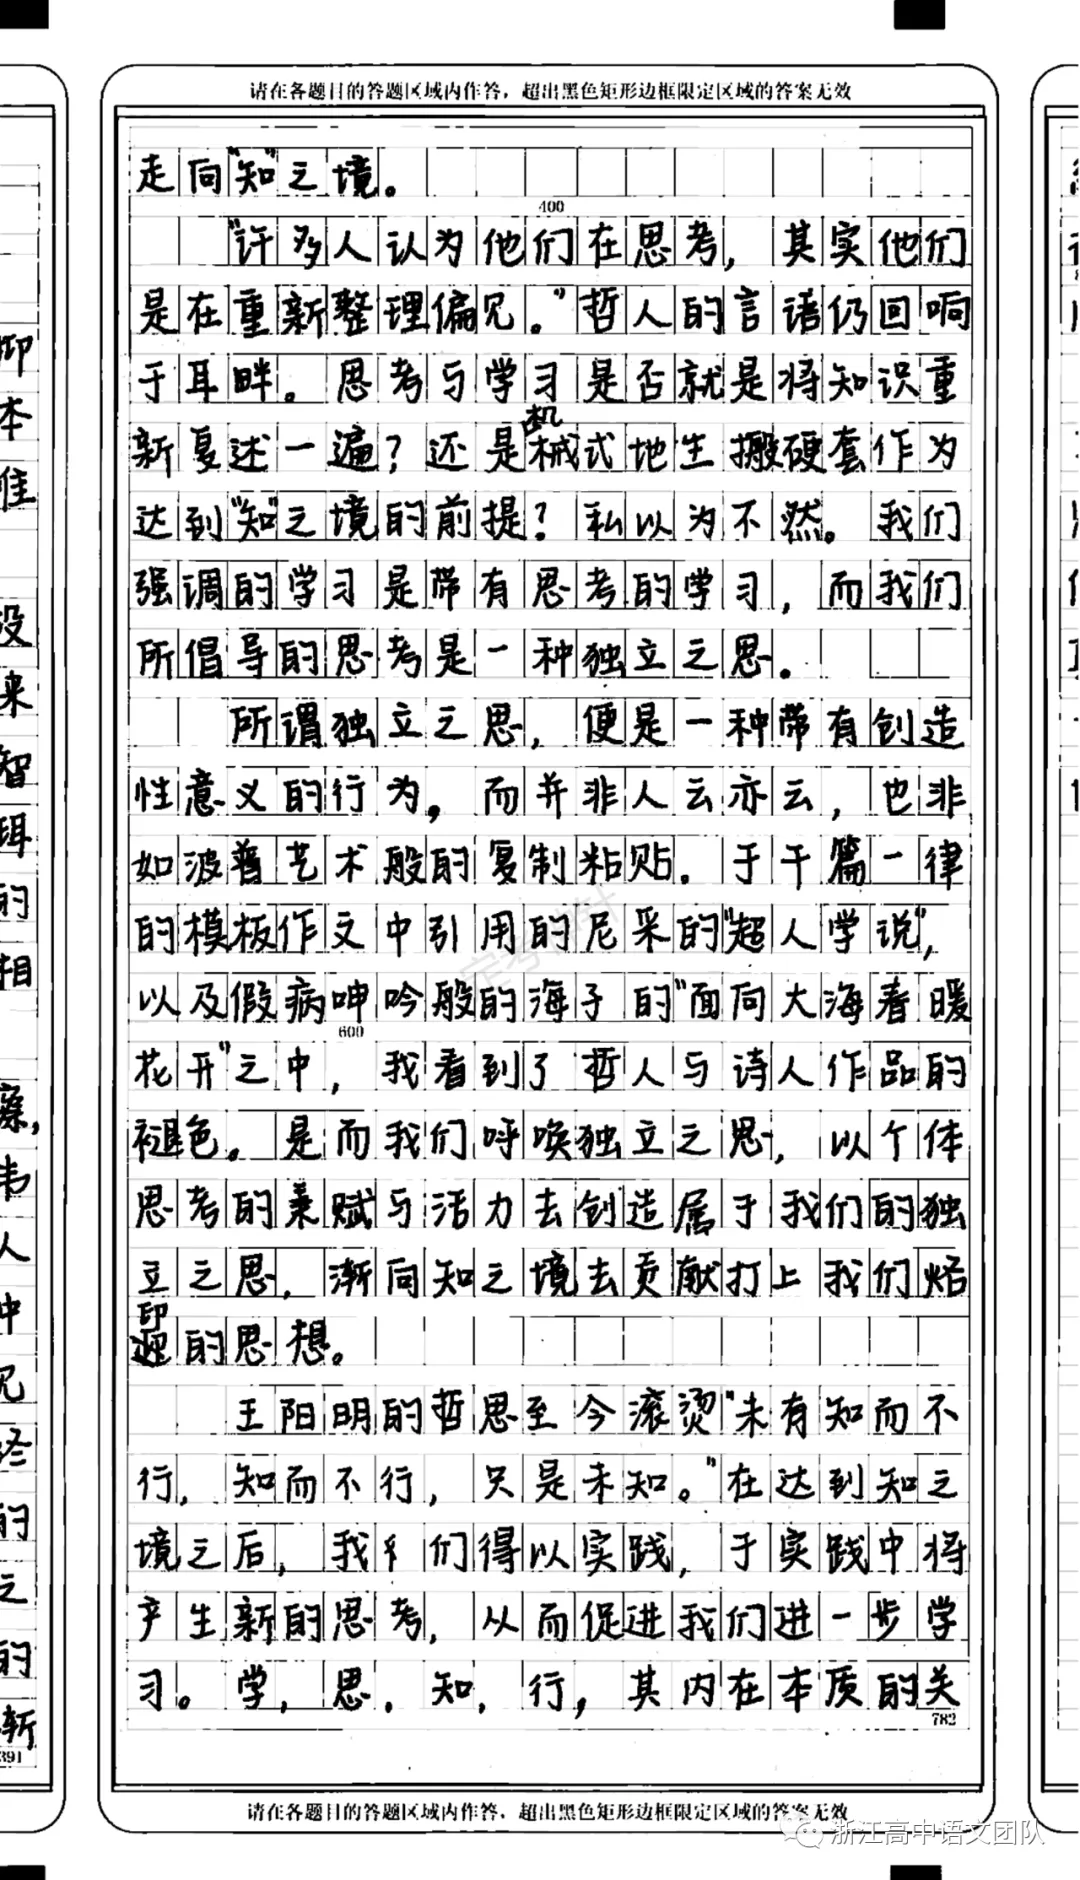 请在各题目的答题区域内作答，超出黑色矩形边框限定区域的答案无效
走向“知”之境。
400
“许多人认为他们在思考，其实他们
是在重新整理偏见。”哲人的言语仍回响
于耳畔。思考与学习是否就是将知识重
新复述一遍？还是机械式地生搬硬套作为
达到“知”之境的前提？私以为不然。我们
强调的学习是带有思考的学习，而我们
所倡导的思考是一种独立之思。
所谓独立之思，便是一种带有创造
性意义的行为。而并非人云亦云，也非
如波普艺术般的复制粘贴。于千篇一律
的模板作文中引用的尼采的“超人学说”，
以及假病呻吟般的海子的“面向大海春暖
600
花开”之中，我看到了哲人与诗人作品的
褪色。是而我们呼唤独立之思，以个体
思考的禀赋与活力去创造属于我们的独
立之思，渐向知之境去贡献打上我们烙
印的思想。
王阳明的哲思至今滚烫“未有知而不
行，知而不行，只是未知。”在达到知之
境之后，我们得以实践，于实践中将
产生新的思考，从而促进我们进一步学
习。学，思，知，行，其内在本质的关
782
请在各题目的答题区域内作答，超出黑色矩形边框限定区域的答案无效
浙江高中语文团队
抑
本
准
没
来
智
珥
的
相
察，
韦
人
种
见
终
的
之
的
渐
391